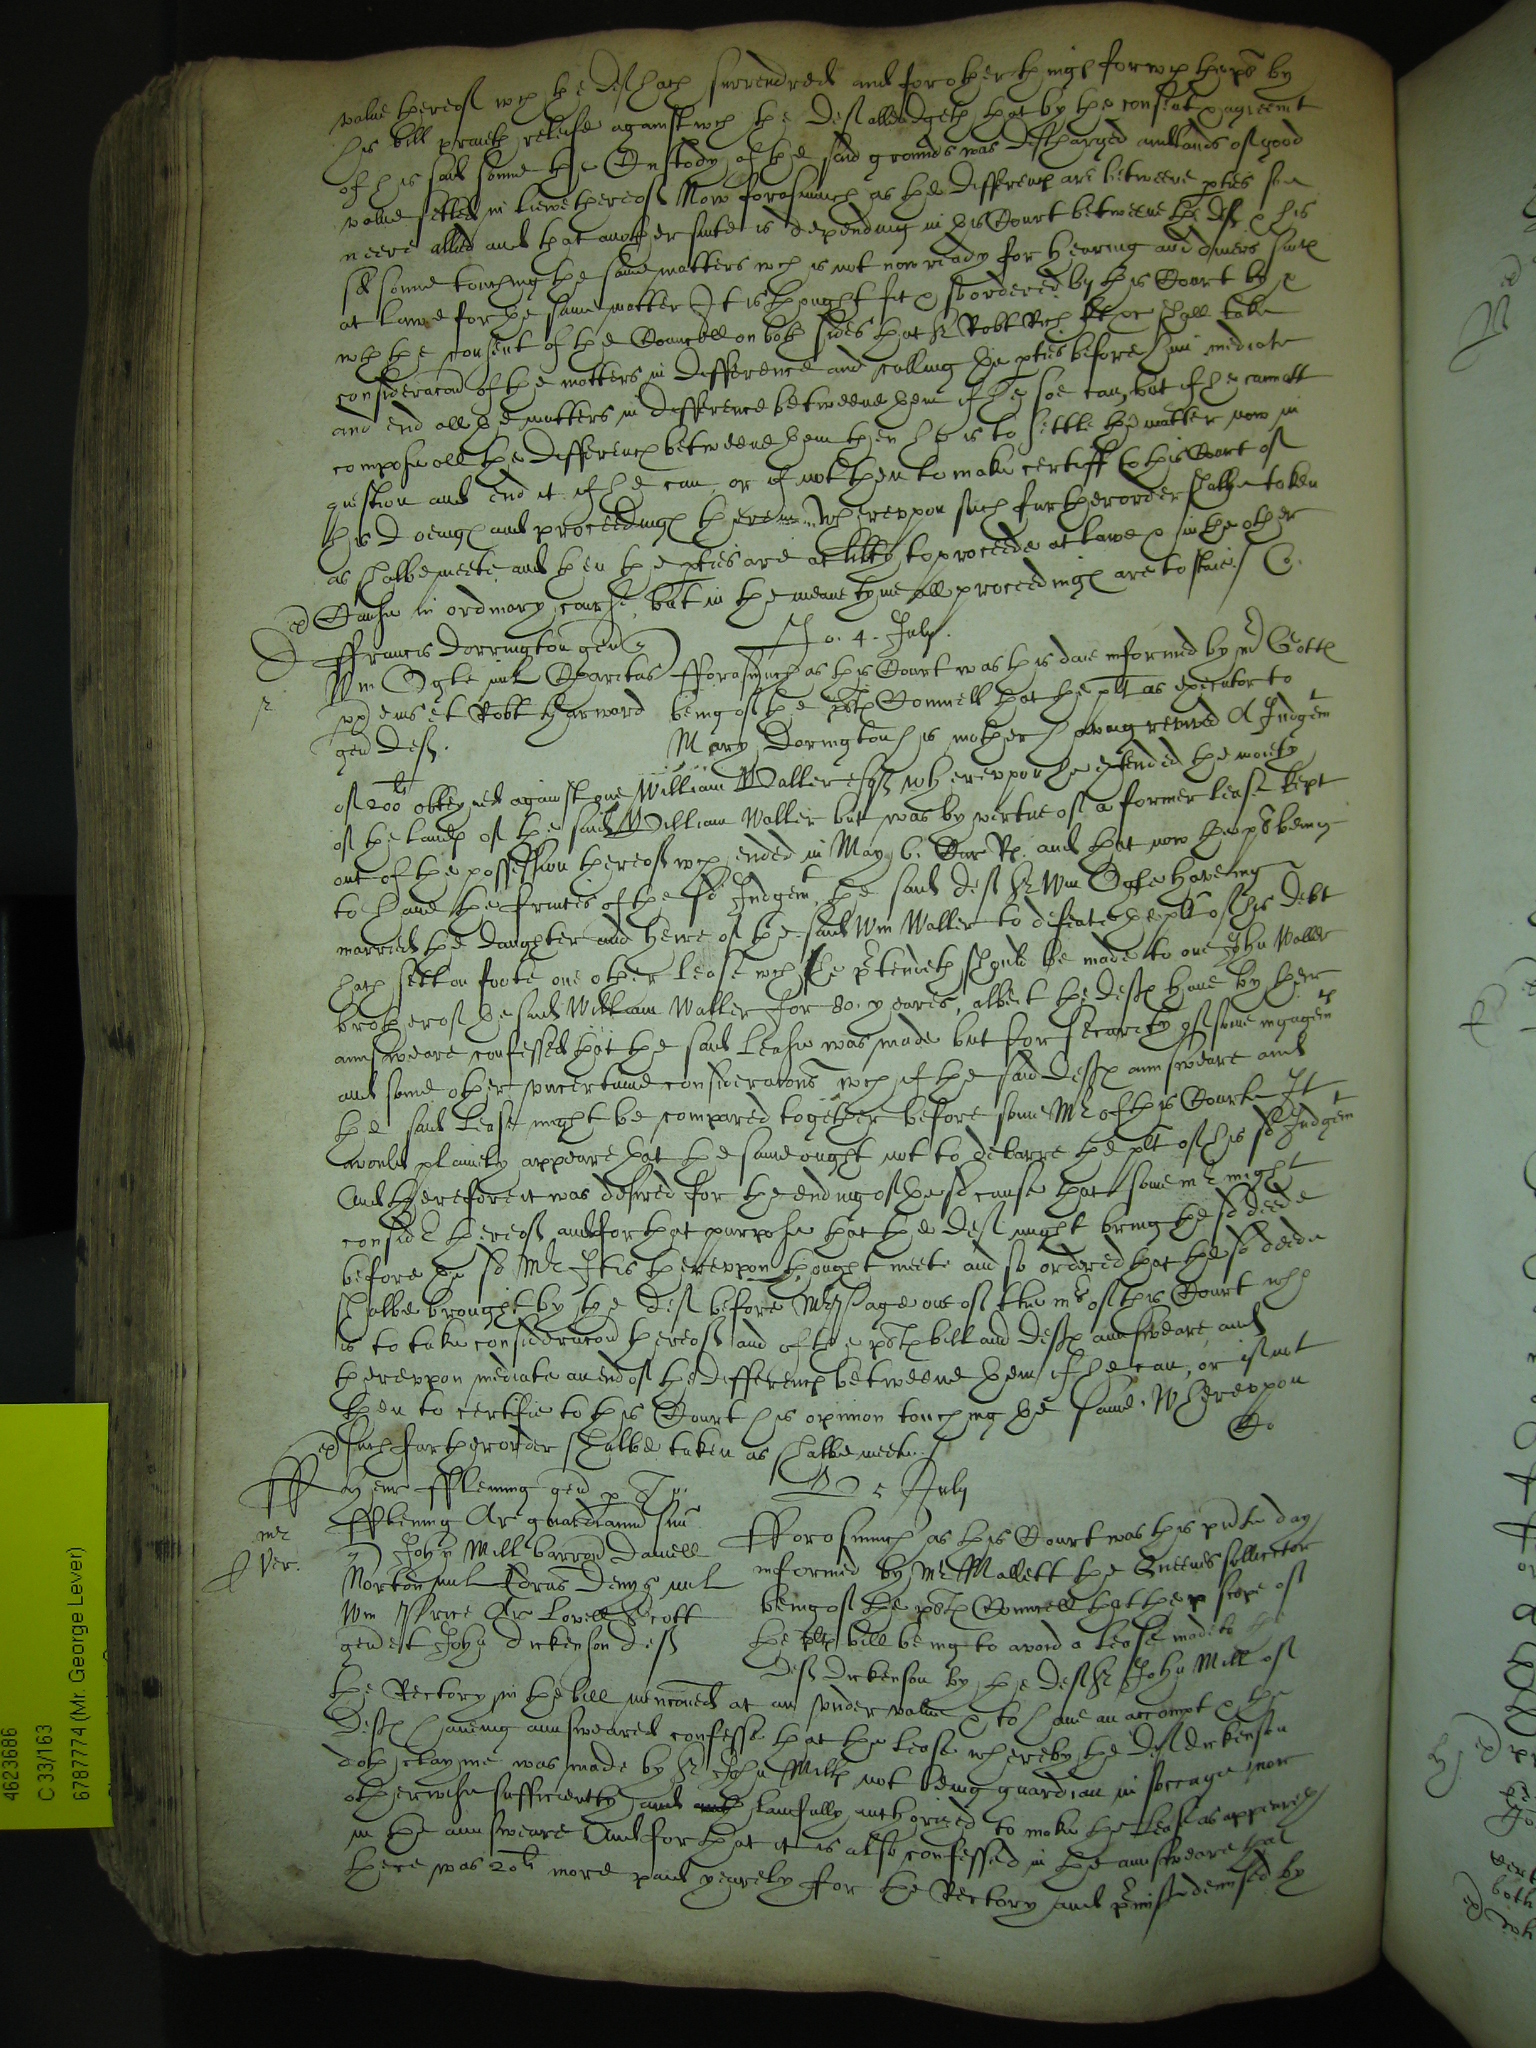 value thereof wch the deft hath surrendred and for other things for wch the plt by
his bill prayeth releife against wch the Deft alleadgeth that by the consent & agreemt
of his said sonne the Custody of the said grounds was discharged and lands of good
value setled in liewe thereof Now forasmuch as the differences are betweene pties soe
neere allied and that another suite is depending in this Court betweene the deft & his
sd sonne touching the same matters wch is not now ready for hearing and divers suits
at Lawe for the same matter It is thought fit & so ordered by this Court by &
wth the consent of the Councell on both sides that Sr Robt Rich kt &c shall take
consideracon of the matters in difference and calling the pties before him mediate
and end all the matters in difference betweene them if he soe can, but if he cannott
compose all the differences betweene them then he is to settle the matter now in
question and end it if he can, or if not then to make certiff to this Court of
his doeings and proceedings therein whereuppon such further order shalbe taken
as shalbe meete and then the pties are at liberty to proceede at Lawe & in the other
Cause in ordinary course, but in the meane tyme all proceedings are to staie / Co.
ffrancis Dorrington gen
Wm Ogle mil Charitas
ux eius et Robt Harward
gen defts.
4. July.
fforasmuch as this Court was this daie informed by Mr
being of the plts Councell that the plt as executor to
Mary Dorington his mother having revived A Judgemt
of 200li obteyned against one William Waller esqr whereuppon he extended the moiety
of the lands of the said William Waller but was by vertue of a former lease kept
out of the possession thereof wch ended in May 6. Car Rs. and that now the plt being
to have the fruites of the sd Judgemt, the said deft Sr Wm Ogle haveing
married the daughter and heire of the said Wm Waller to defeate the plt of his debt
hath sett on foote one other lease wch he ptendeth should be made to one John Waller
brother of the said William Waller for 80. yeares, albeit the defts have by their
answeare confessed that the said lease was made but for security of some ingagemts
and some other uncertaine consideracons wch if the said defts answeare and
the said Lease might be compared together before some Mr of this Courte It
would plainely appeare that the same ought not to debarre the plt of his sd Judgemt
And therefore it was desired for the ending of the sd cause that some mr might
consider thereof and for that purpose that the deft might bring the sd deede
before the sd Mr It is thereuppon thought meete and so ordered that the sd deede
shalbe brought by the deft before Mr Page one of the mrs of this Court who
is to take consideracon thereof and of the plts bill and defts answeare, and
thereuppon mediate an end of the differences betweene them if he can, or if not
then to certifie to this Court his opinion touching the same. Whereuppon
such further order shalbe taken as shalbe meete. /
Co
Henr fflemming gen p
fflemming Ar guardianu suu
John Mill barron Daniell
Norton mil Edrus Denys mil
Wm Price Ar Lovell Scott
gen et John Dickenson defts
5 July
fforasmuch as this Court was this pnte day
informed by Mr Mallett the Queenes sollicitor
being of the plts Councell that the scope of
the plts bill being to avoid a lease made to the
deft Dickenson by the deft Sr John Mill of
the Rectory in the bill menconed at an under value & to have an accompt & the
defts having answeared confesse that the lease whereby the deft dickenson
doth clayme was made by Sr John Mills not being guardian in soccage nor
otherwise sufficiently and lawfully authorized to make the lease as appeareth
in the answeare And for that it is also confessed in the answeare that
there was 20li more paid yearely for the Rectory and pmisses demised by
mr
Ver.
4623686
C 33/163
6787774 (Mr. George Lever)